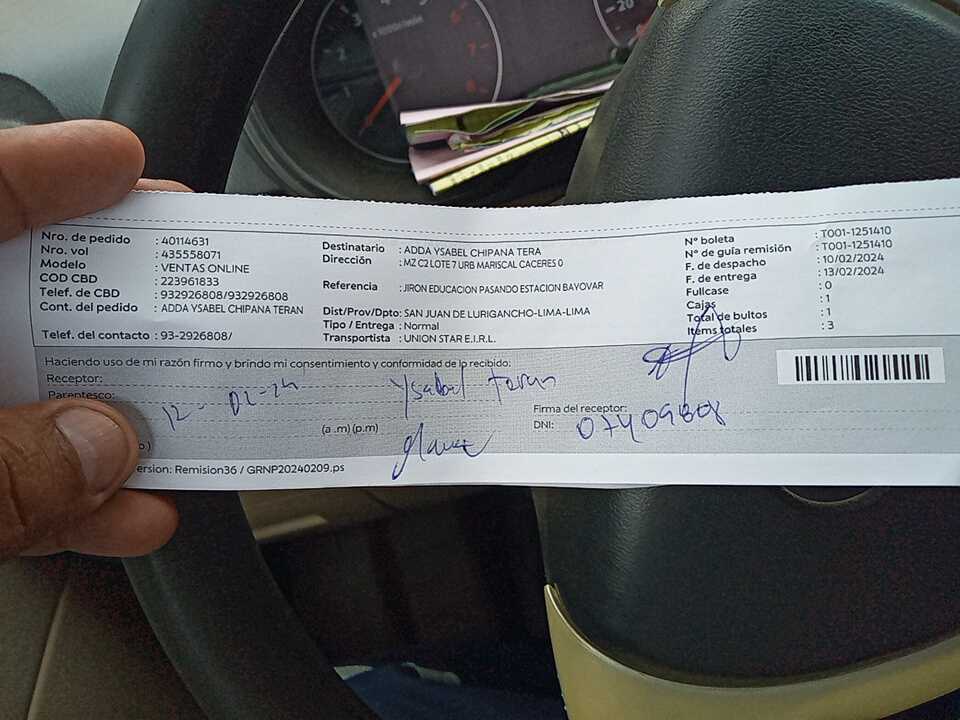 Nro. de pedido : 40114631
Nro. vol : 435558071
Modelo : VENTAS ONLINE
COD CBD : 223961833
Telef. de CBD : 932926808/932926808
Cont. del pedido : ADDA YSABEL CHIPANA TERAN
Telef. del contacto : 93-2926808/
Destinatario : ADDA YSABEL CHIPANA TERA
Dirección : MZ C2 LOTE 7 URB MARISCAL CACERES 0
Referencia : JIRON EDUCACION PASANDO ESTACION BAYOVAR
Dist/Prov/Dpto: SAN JUAN DE LURIGANCHO-LIMA-LIMA
Tipo / Entrega : Normal
Transportista : UNION STAR E.I.R.L.
N° boleta : T001-1251410
N° de guía remisión : T001-1251410
F. de despacho : 10/02/2024
F. de entrega : 13/02/2024
Fullcase : 0
Cajas : 1
Total de bultos : 1
Items totales : 3
Haciendo uso de mi razón firmo y brindo mi consentimiento y conformidad de lo recibido:
Receptor: Ysabel Teran
Parentesco:
12-02-24
(a .m) (p.m)
Firma del receptor:
DNI: 07409808
ersion: Remision36 / GRNP20240209.ps